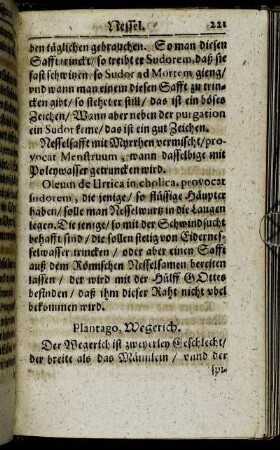 Nessel. 221
ben täglichen gebrauchen. So man diesen
Safft trinckt/ so treibt er Sudorem, daß sie
fast schwitzen/ so Sudor ad Mortem gieng/
vnd wann man einem diesen Safft zu trin-
cken gibt/ so stehet er still/ das ist ein böses
Zeichen/ Wann aber neben der purgation
ein Sudor keme/ das ist ein gut Zeichen.
Nesselsafft mit Myrrhen vermischt/ pro-
vocat Menstruum, wann dasselbige mit
Poleywasser getruncken wird.
Oleum de Urtica in cholica, provocat
sudorem, die jenige/ so flüssige Häupter
haben/ solle man Nesselwurtz in die Laugen
legen. Die jenige/ so mit der Schwindsucht
behafft sind/ die sollen stetig von Eiderne-
sselwasser trincken/ oder aber einen Safft
auß dem Römischen Nesselsamen bereiten
lassen/ der wird mit der Hülff GOttes
befinden/ daß ihm dieser Raht nicht vbel
bekommen wird.
Plantago, Wegerich.
Der Wegerich ist zweyerley Geschlecht/
der breite als das Männlein/ vnnd der
spi-